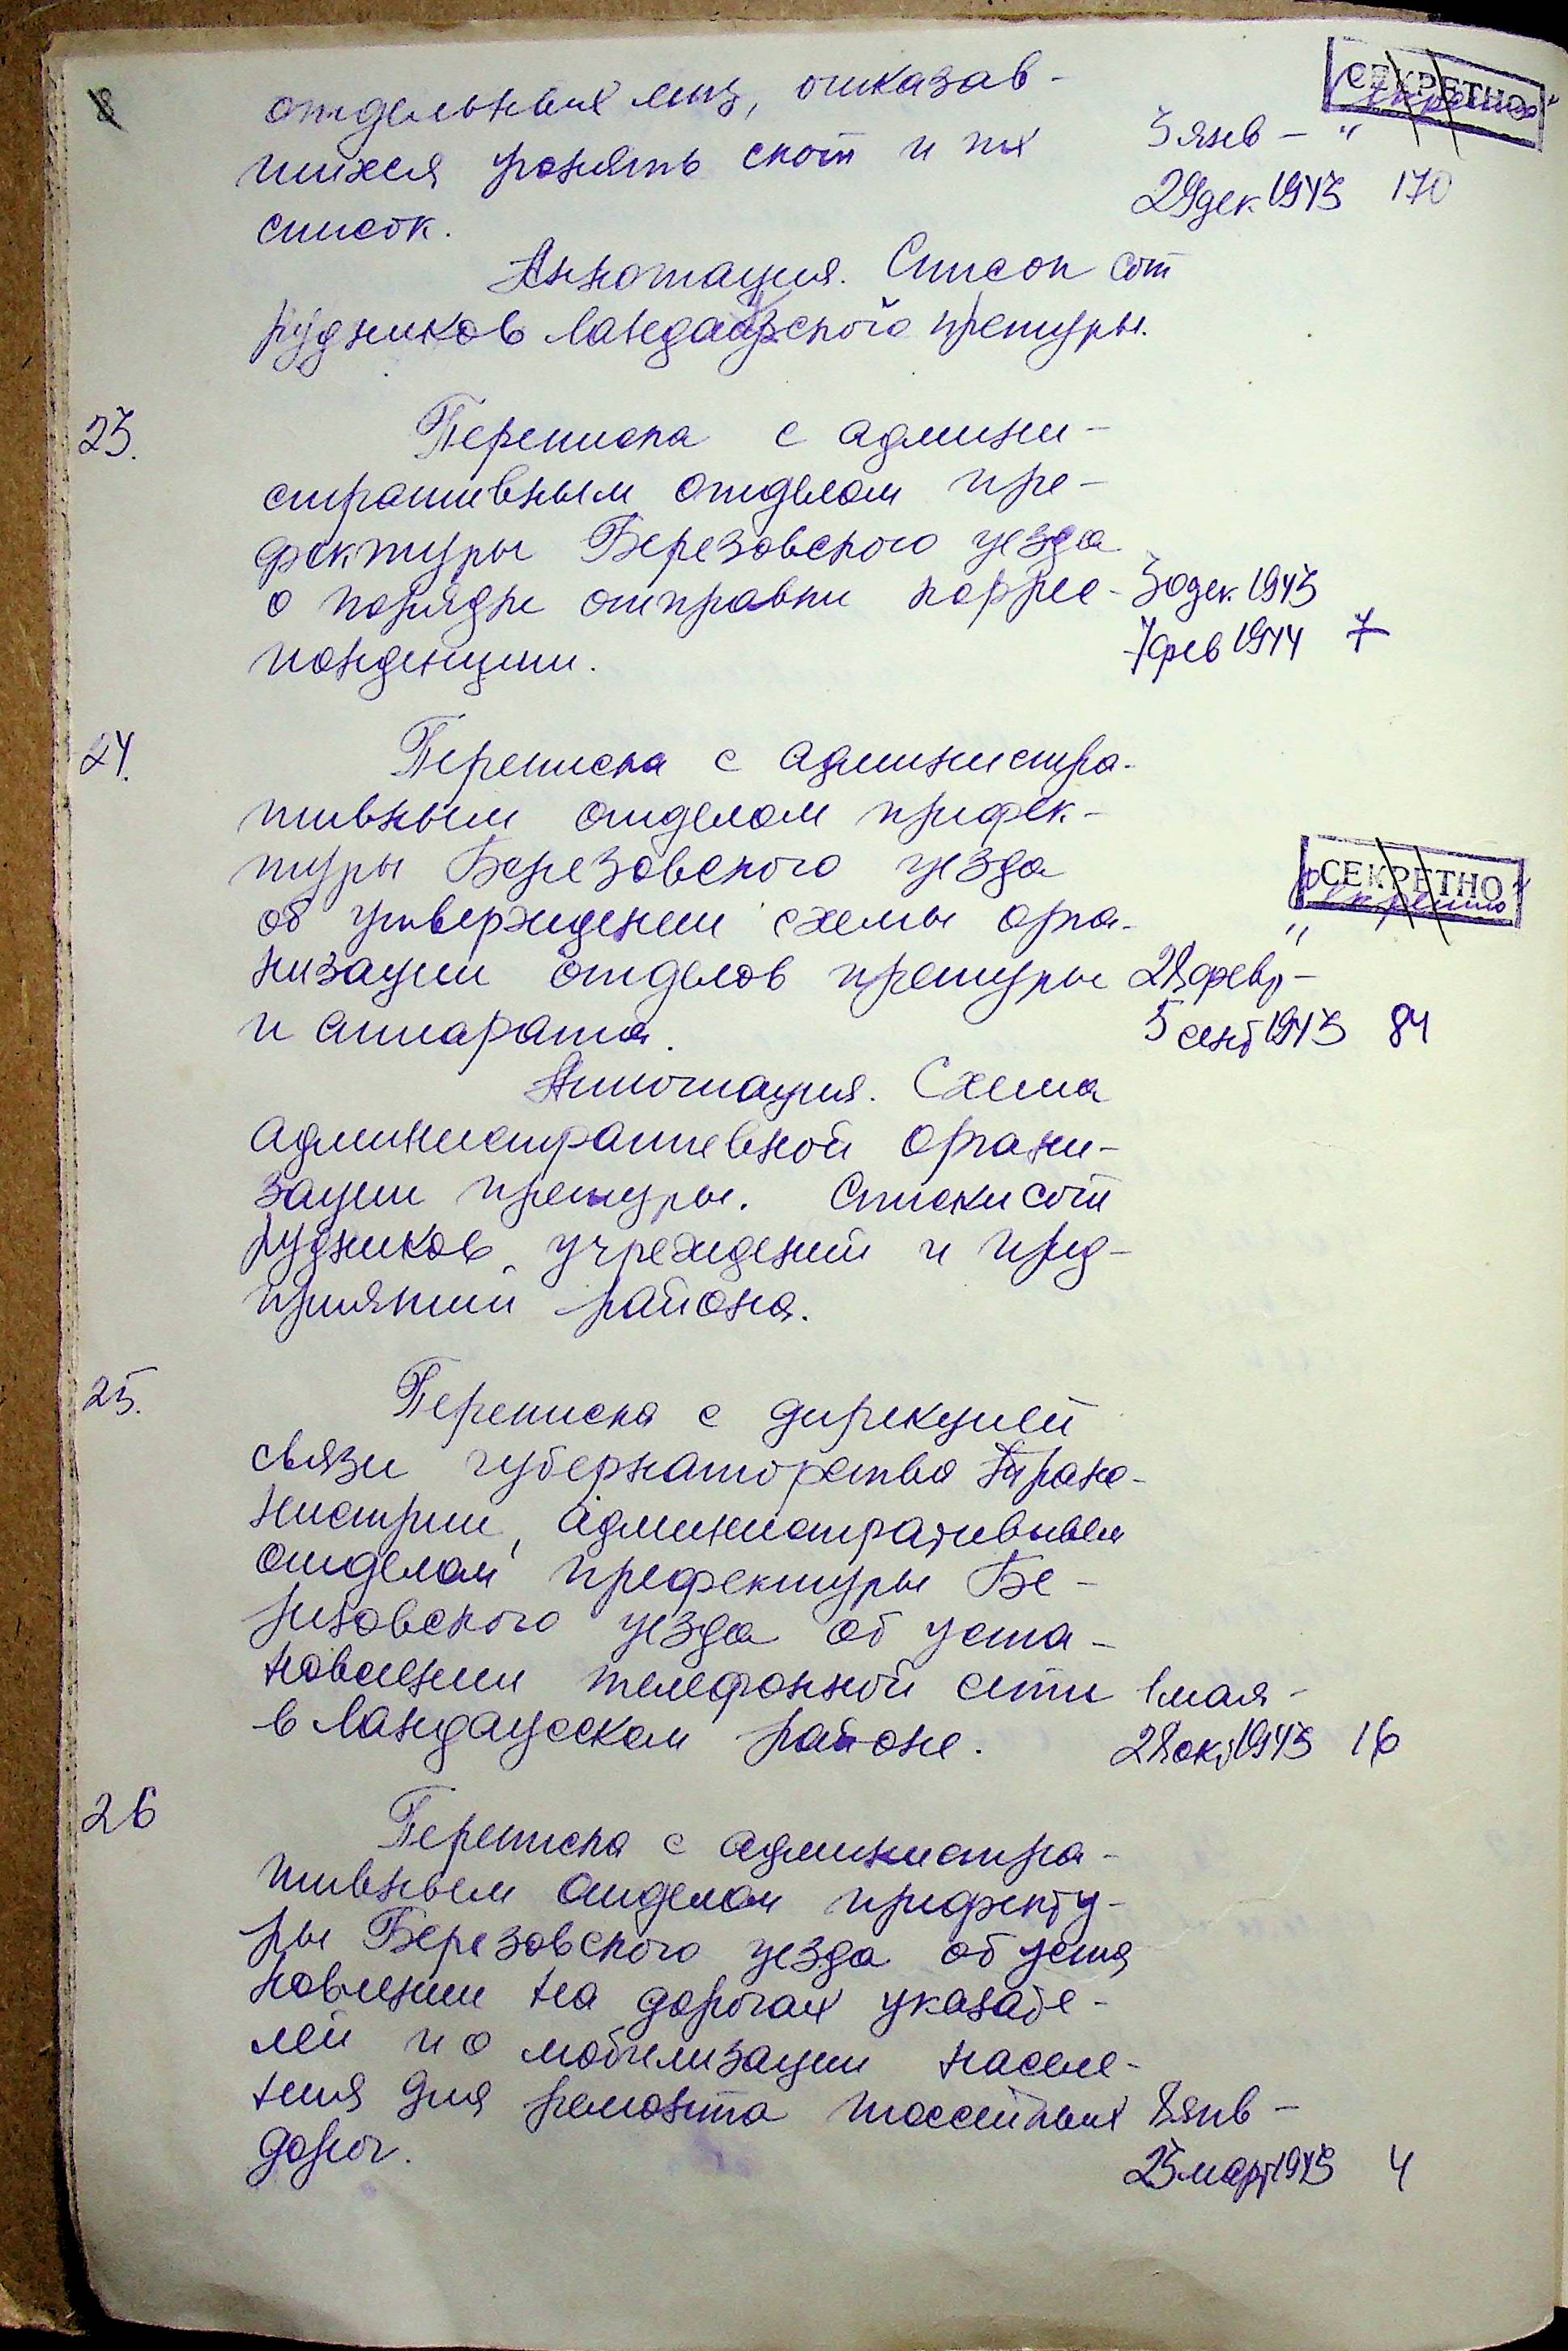 8
СЕКРЕТНО
„секретно“
отдельных лиц, отказав-
шихся угонять скот и их
3 янв – "
список.
29 дек 1943 170
Аннотация. Список сот
рудников Ландауского претуры.
23.
Переписка с админи-
стративным отделом пре-
фектуры Березовского уезда
о порядке отправки коррес-
30 дек 1943
понденции.
7 фев 1944 7
24.
Переписка с администра-
тивным отделом префек-
туры Березовского уезда
СЕКРЕТНО
„секретно“
об утверждении схемы орга-
"
низации отделов претуры
28 февр –
и аппарата.
5 сент 1943 84
Аннотация. Схема
административной органи-
зации претуры. Списки сот
рудников учреждений и пред-
приятий района.
25.
Переписка с дирекцией
связи губернаторства Транс-
нистрии, административным
отделом префектуры Бе-
резовского уезда об уста-
новлении телефонной сети
1 мая –
в Ландауском районе.
28 окт 1943 16
26
Переписка с администра-
тивным отделом префекту-
ры Березовского уезда об уста
новлении на дорогах указате-
лей и о мобилизации населе-
ния для ремонта шоссейных
8 янв –
дорог.
25 март 1943 4